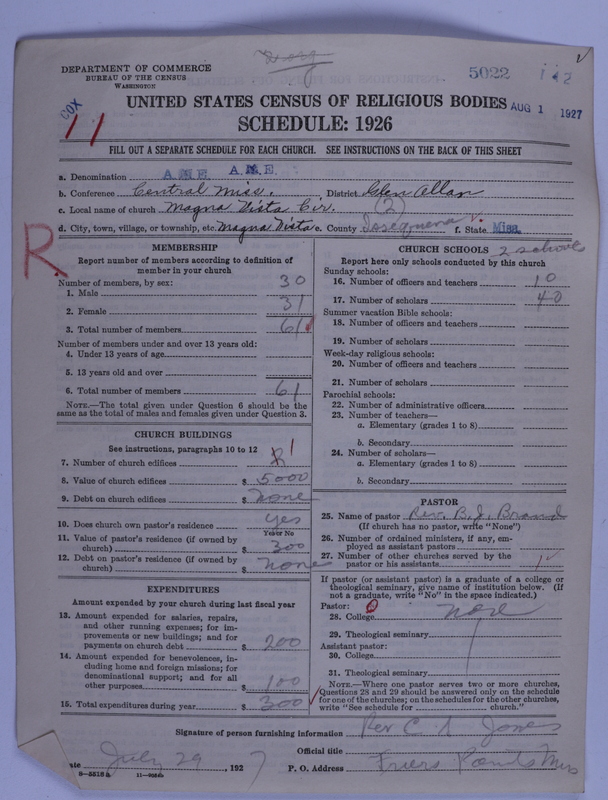 DEPARTMENT OF COMMERCE
BUREAU OF THE CENSUS
WASHINGTON
5022
COX
11
UNITED STATES CENSUS OF RELIGIOUS BODIES
AUG 1 1927
SCHEDULE: 1926
FILL OUT A SEPARATE SCHEDULE FOR EACH CHURCH. SEE INSTRUCTIONS ON THE BACK OF THIS SHEET
a. Denomination A.M.E. A.M.E.
b. Conference Central Miss. District Glen Allan
c. Local name of church Magna Vista Cir. (2)
d. City, town, village, or township, etc. Magna Vista e. County Issaquena f. State Miss.
R
MEMBERSHIP
Report number of members according to definition of member in your church
Number of members, by sex:
1. Male 30
2. Female 31
3. Total number of members 61
Number of members under and over 13 years old:
4. Under 13 years of age
5. 13 years old and over
6. Total number of members 61
NOTE.—The total given under Question 6 should be the same as the total of males and females given under Question 3.
CHURCH BUILDINGS
See instructions, paragraphs 10 to 12
7. Number of church edifices 1
8. Value of church edifices $ 5000
9. Debt on church edifices $ None
10. Does church own pastor's residence yes
Yes or No
11. Value of pastor's residence (if owned by church) $ 300
12. Debt on pastor's residence (if owned by church) $ none
EXPENDITURES
Amount expended by your church during last fiscal year
13. Amount expended for salaries, repairs, and other running expenses; for improvements or new buildings; and for payments on church debt $ 200
14. Amount expended for benevolences, including home and foreign missions; for denominational support; and for all other purposes $ 100
15. Total expenditures during year $ 300
CHURCH SCHOOLS 2 schools
Report here only schools conducted by this church
Sunday schools:
16. Number of officers and teachers 10
17. Number of scholars 40
Summer vacation Bible schools:
18. Number of officers and teachers
19. Number of scholars
Week-day religious schools:
20. Number of officers and teachers
21. Number of scholars
Parochial schools:
22. Number of administrative officers
23. Number of teachers—
a. Elementary (grades 1 to 8)
b. Secondary
24. Number of scholars—
a. Elementary (grades 1 to 8)
b. Secondary
PASTOR
25. Name of pastor Rev. B. J. Brand
(If church has no pastor, write "None")
26. Number of ordained ministers, if any, employed as assistant pastors
27. Number of other churches served by the pastor or his assistants 1
If pastor (or assistant pastor) is a graduate of a college or theological seminary, give name of institution below. (If not a graduate, write "No" in the space indicated.)
Pastor:
28. College none
29. Theological seminary
Assistant pastor:
30. College
31. Theological seminary
NOTE.—Where one pastor serves two or more churches, Questions 28 and 29 should be answered only on the schedule for one of the churches; on the schedules for the other churches, write "See schedule for church."
Signature of person furnishing information Rev C A Jones
Official title
Date July 29, 1927 P. O. Address Friers Point Miss
8—5518a 11—9034b